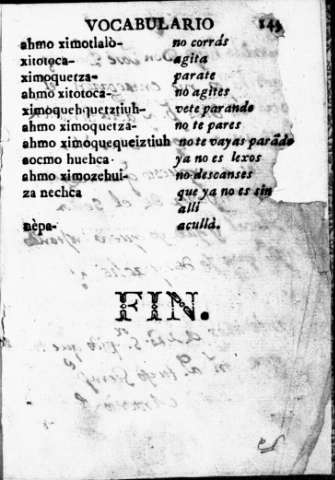 VOCABULARIO 145
ahmo ximotlalò- no corrás
xitotoca- agita
ximoquetza- parate
ahmo xitotoca- no agites
ximoquehquetztiuh- vete parando
ahmo ximoquetza- no te pares
ahmo ximóquequeiztiuh no te vayas parādo
aocmo huehca- ya no es lexos
ahmo ximozehui- no descanses
za nechca que ya no es sin
alli
nèpa- acullà.
FIN.